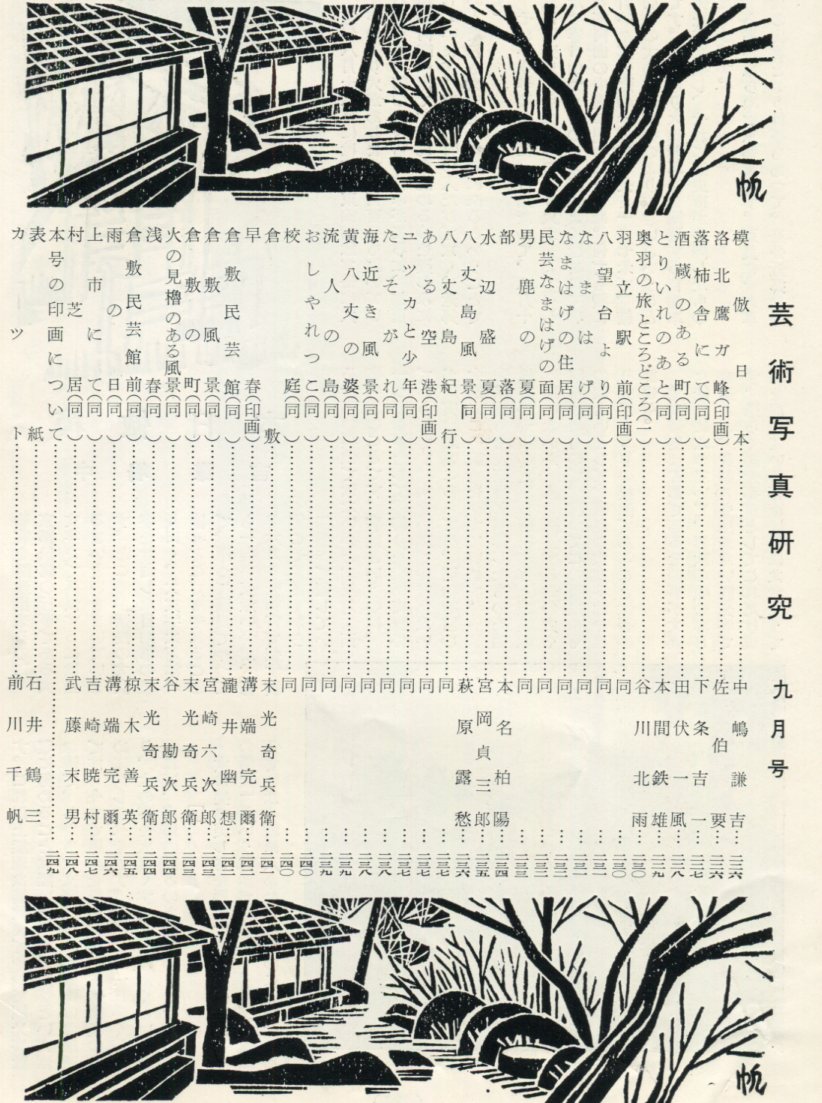 芸術写真研究 九月号
模倣日本……中嶋謙吉…二二六
洛北鷹ガ峰(印画)……佐伯要…二二六
落柿舎にて(同)……下条吉一…二二七
酒蔵のある町(同)……田伏一風…二二八
とりいれのあと(同)……本間鉄雄…二二九
奥羽の旅ところどころ(一)……谷川北雨…二三〇
羽立駅前(印画)……同…二三〇
八望台より(同)……同…二三一
なまはげ(同)……同…二三一
なまはげの住居(同)……同…二三二
民芸なまはげの面(同)……同…二三二
男鹿の夏(同)……同…二三三
部落(同)……本名柏陽…二三四
水辺盛夏(同)……宮岡貞三郎…二三五
八丈島風景(同)……萩原露愁…二三六
八丈島紀行……同…二三七
ある空港(印画)……同…二三七
ユツカと少年(同)……同…二三七
たそがれ(同)……同…二三八
海近き風景(同)……同…二三八
黄八丈の婆(同)……同…二三九
流人の島(同)……同…二三九
おしやれつこ(同)……同…二四〇
校庭(同)……同…二四〇
倉敷……末光奇兵衛…二四一
早春(印画)……溝端完爾…二四二
倉敷民芸館(同)……瀧井幽想…二四二
倉敷風景(同)……宮崎六次郎…二四三
倉敷の町(同)……末光奇兵衛…二四三
火の見櫓のある風景(同)……谷勘次郎…二四四
浅春(同)……末光奇兵衛…二四四
倉敷民芸館前(同)……椋木善英…二四五
雨の日(同)……溝端完爾…二四六
上市にて(同)……吉崎暁村…二四七
村芝居(同)……武藤末男…二四八
本号の印画について……二四九
表紙……石井鶴三
カツト……前川千帆
帆
帆